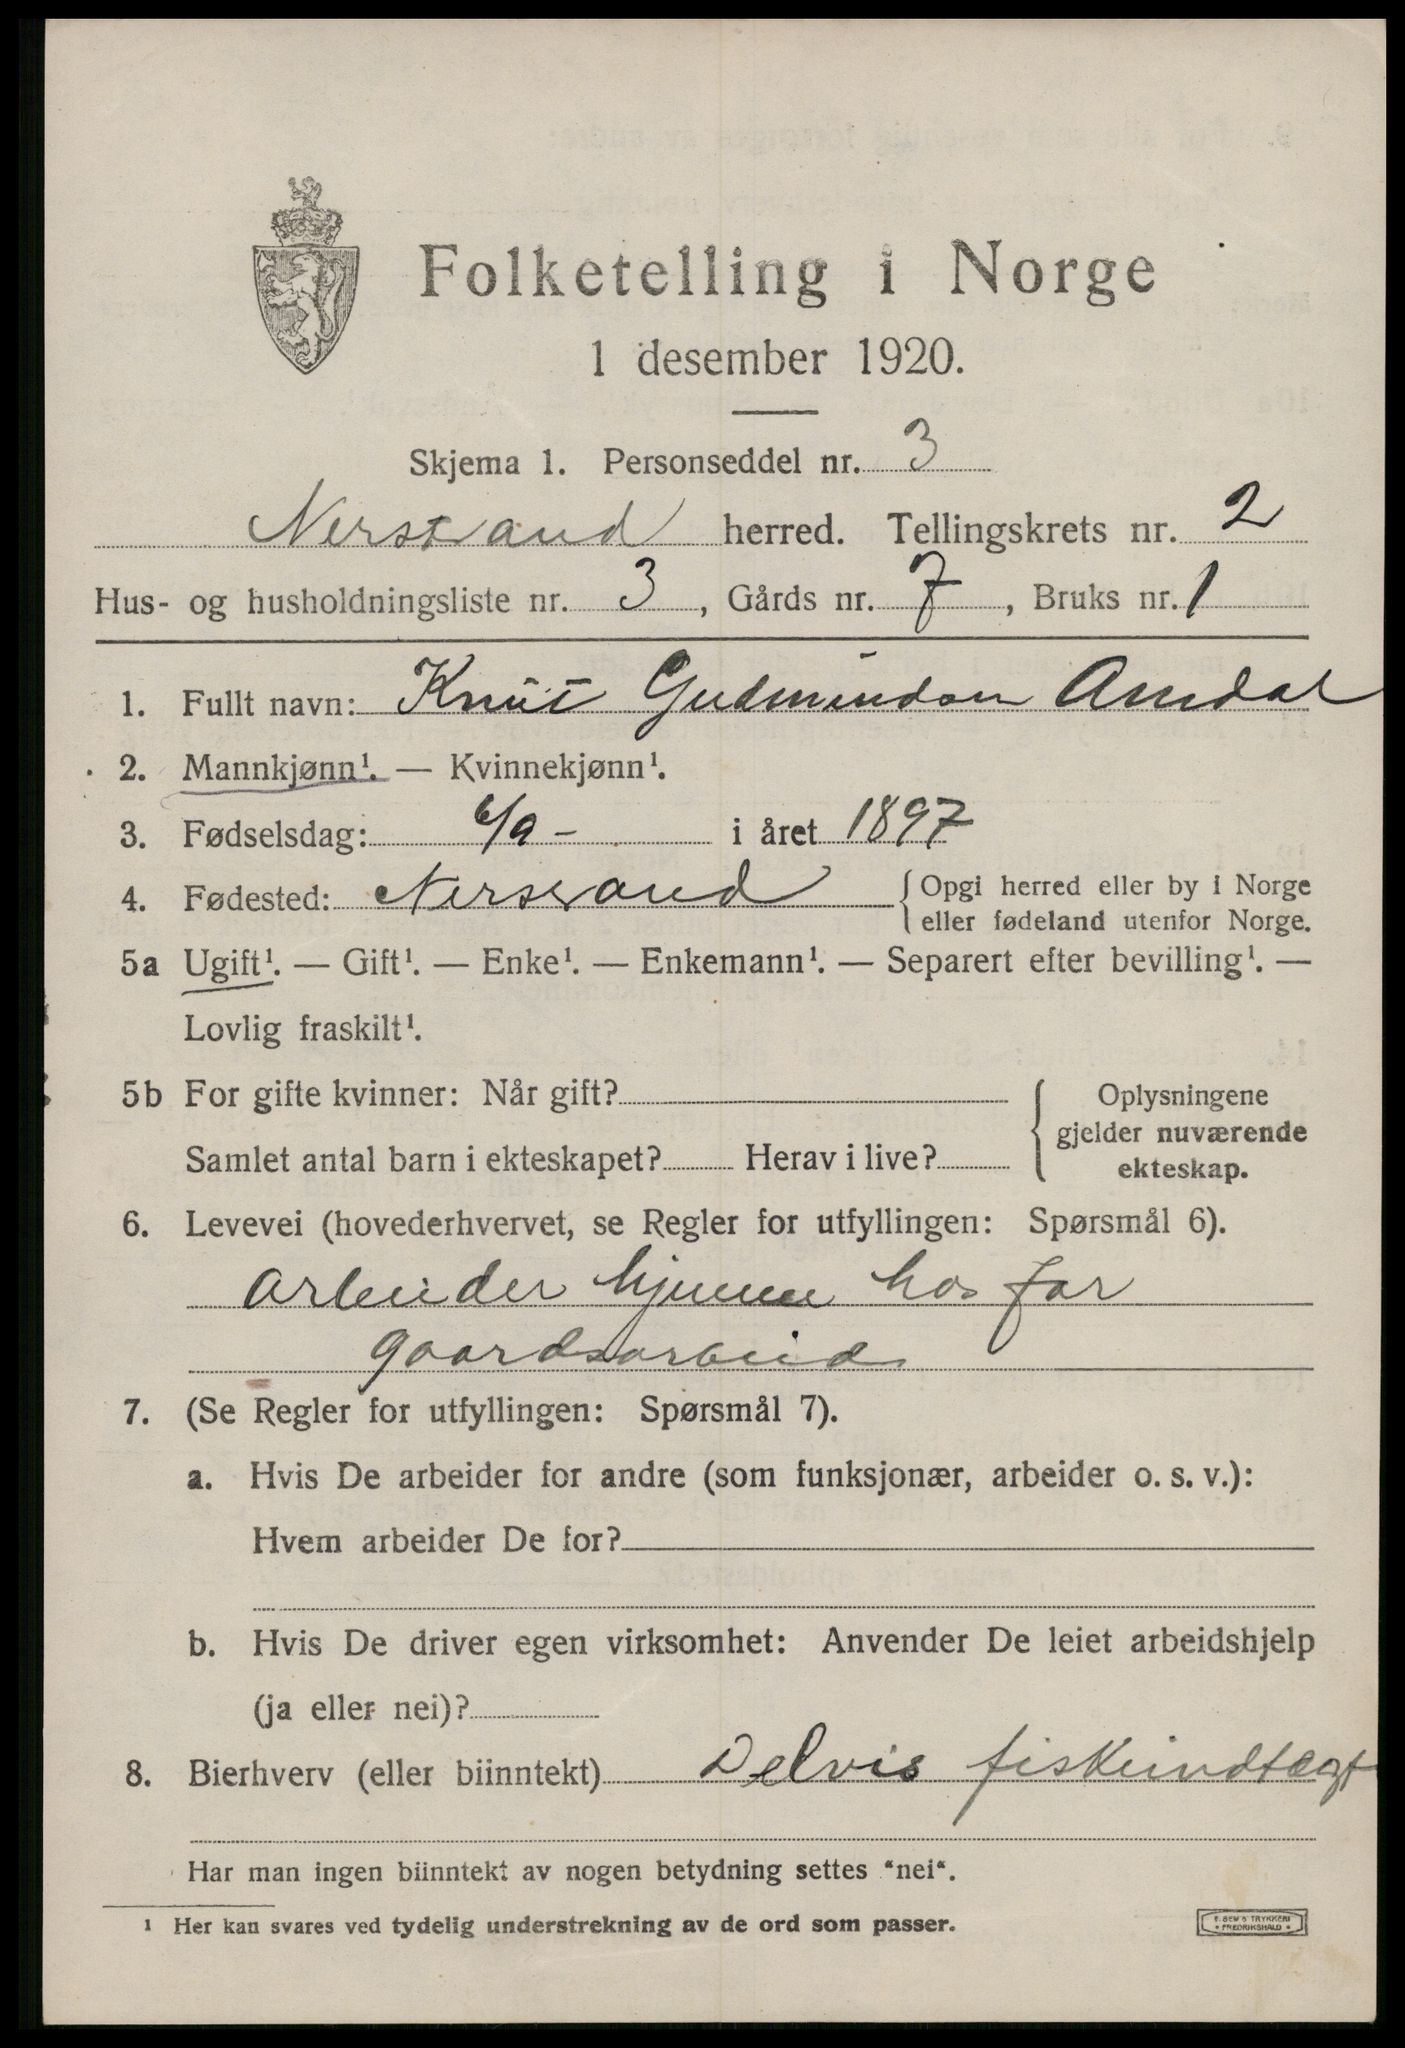 Folketelling i Norge
1 desember 1920.
Skjema 1. Personseddel nr. 3
Nerstrand herred. Tellingskrets nr. 2
Hus- og husholdningsliste nr. 3, Gårds nr. 7, Bruks nr. 1
1. Fullt navn: Knut Gudmundsen Amdal
2. Mannkjønn¹. — Kvinnekjønn¹.
3. Fødselsdag: 6/9 - i året 1897
4. Fødested: Nerstrand { Opgi herred eller by i Norge
eller fødeland utenfor Norge.
5a Ugift¹. — Gift¹. — Enke¹. — Enkemann¹. — Separert efter bevilling¹. —
Lovlig fraskilt¹.
5b For gifte kvinner: Når gift?
Samlet antal barn i ekteskapet? Herav i live?
Oplysningene
gjelder nuværende
ekteskap.
6. Levevei (hovederhvervet, se Regler for utfyllingen: Spørsmål 6).
Arbeider hjemme hos far
gaardsarbeid
7. (Se Regler for utfyllingen: Spørsmål 7).
a. Hvis De arbeider for andre (som funksjonær, arbeider o. s. v.):
Hvem arbeider De for?
b. Hvis De driver egen virksomhet: Anvender De leiet arbeidshjelp
(ja eller nei)?
8. Bierhverv (eller biinntekt) Delvis fiskeindtægt
Har man ingen biinntekt av nogen betydning settes "nei".
¹ Her kan svares ved tydelig understrekning av de ord som passer.
E. SEM'S TRYKKERI
• FREDRIKSHALD •